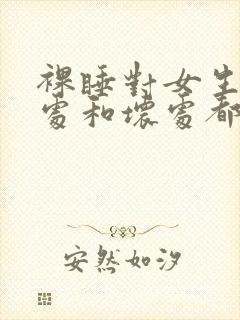 裸睡對女生
處和壞處都
安然如汐